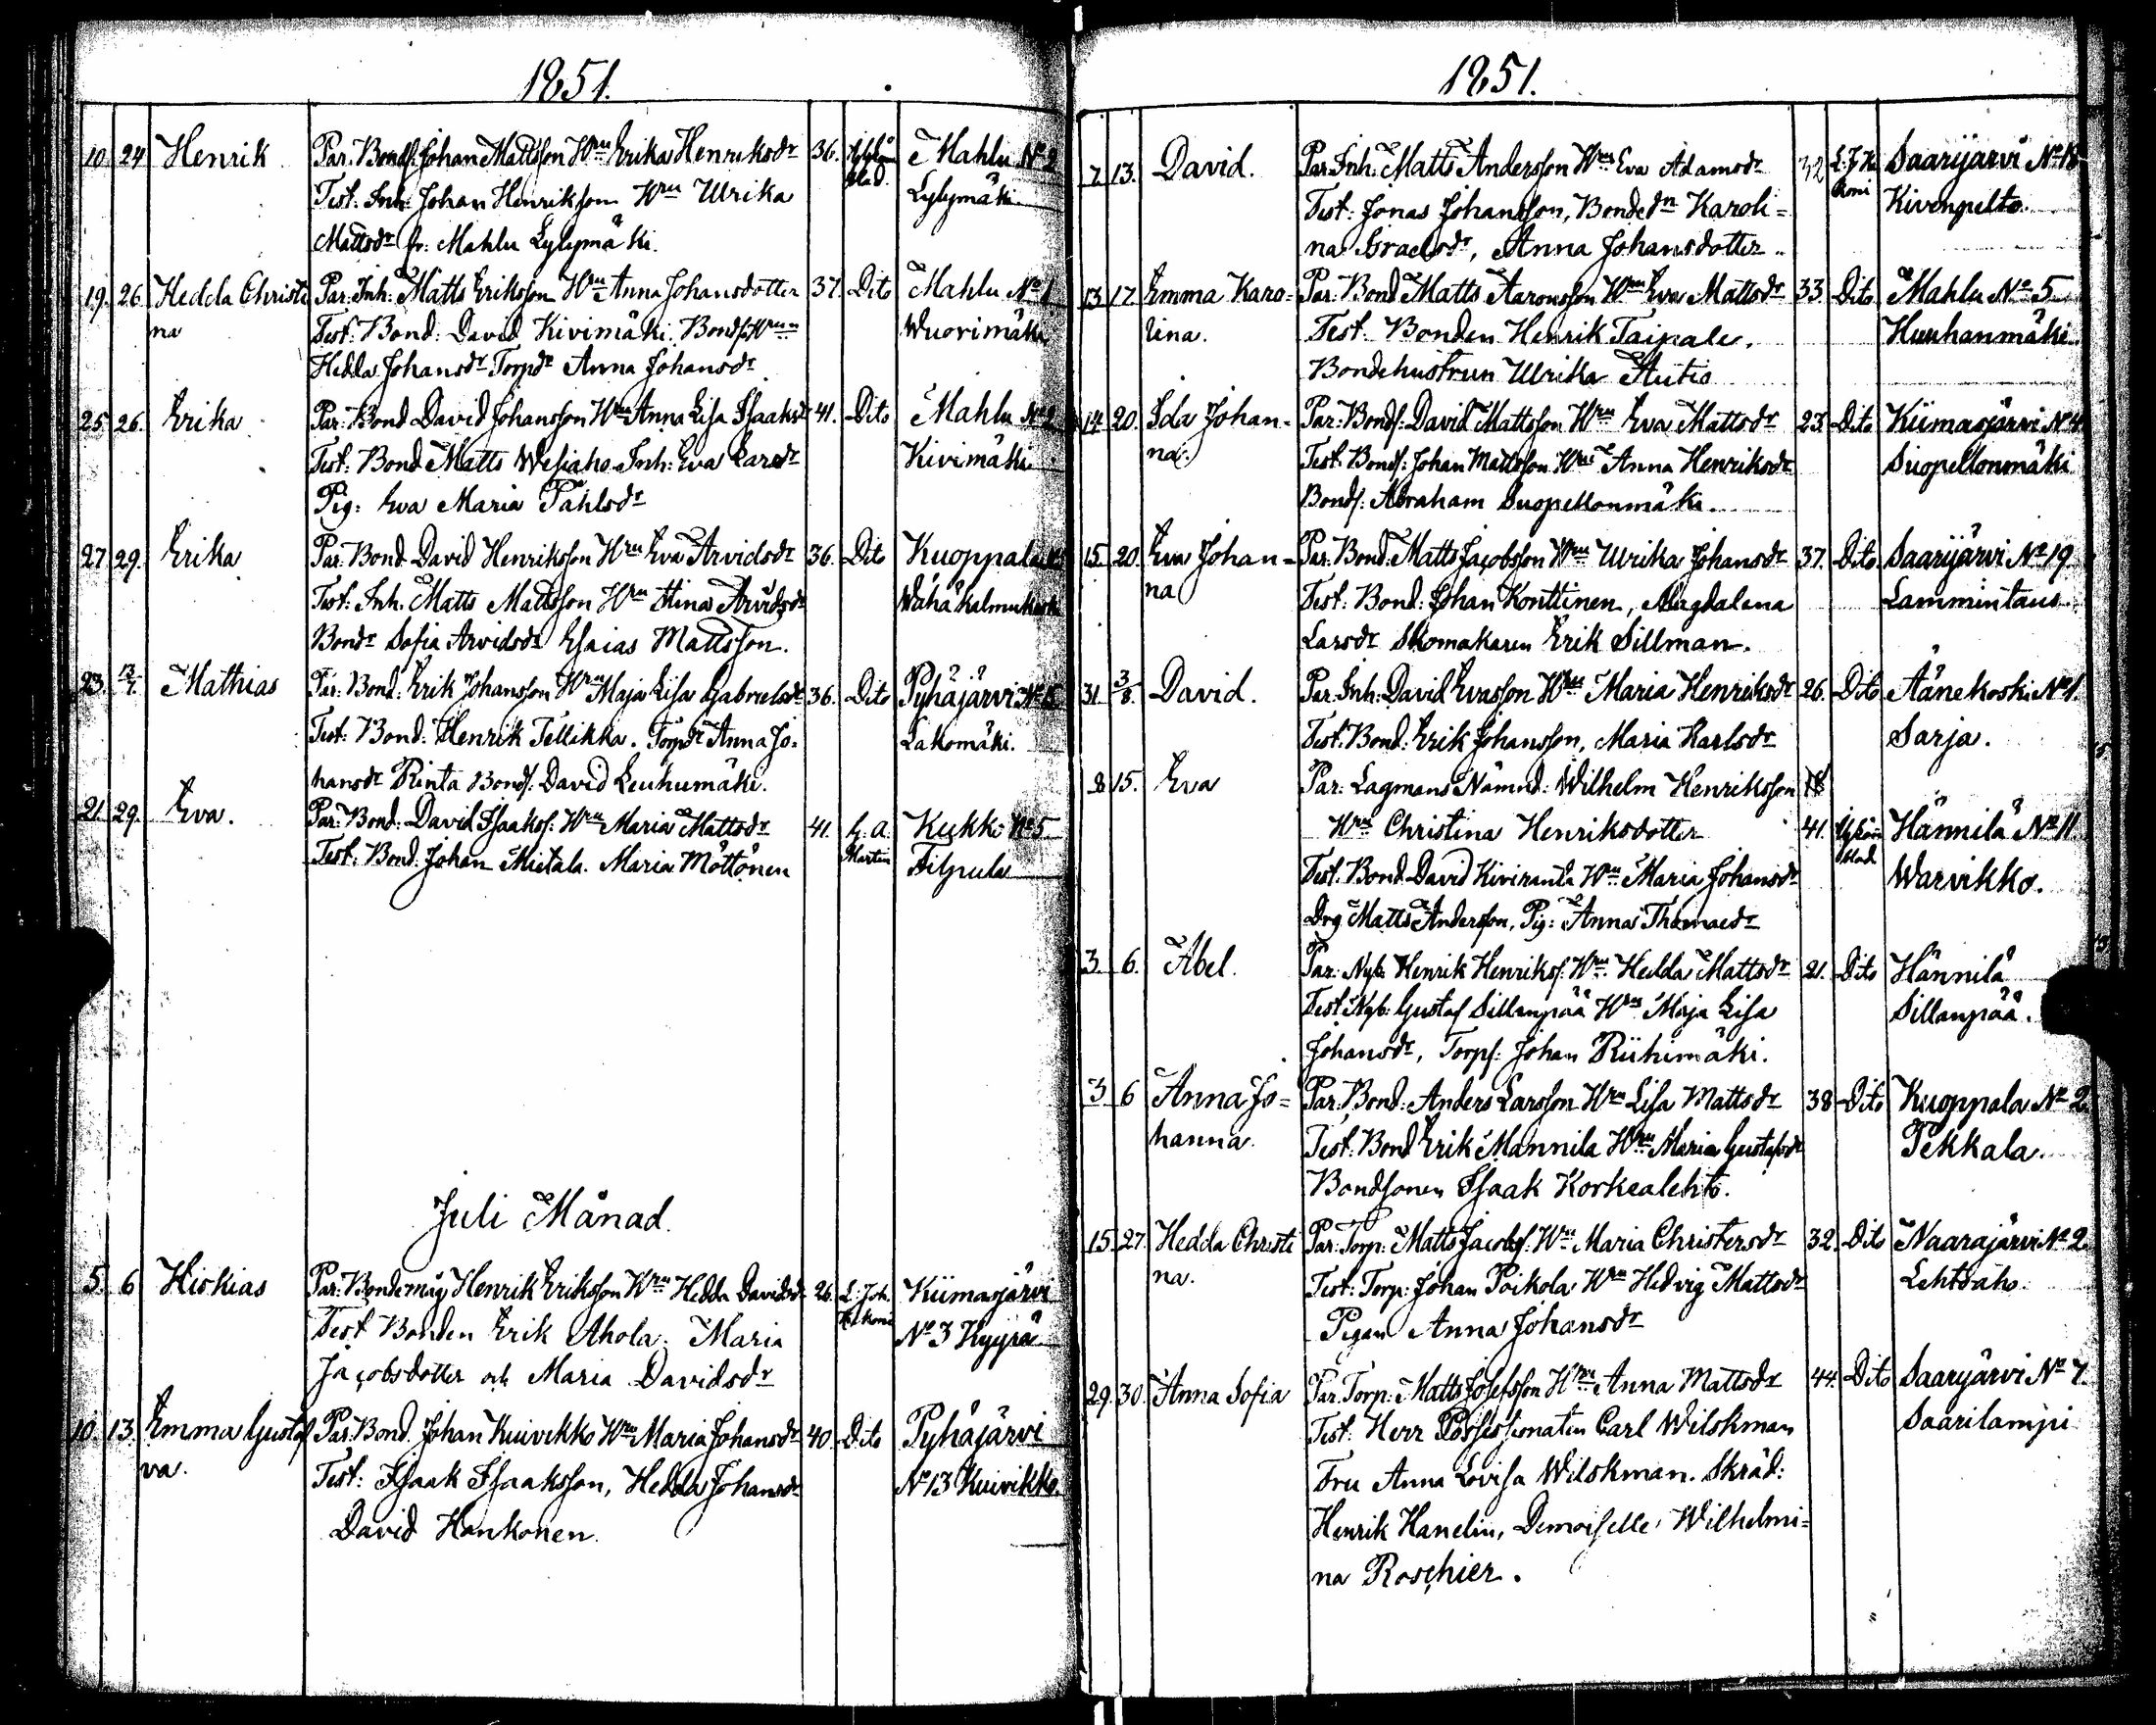 1851.
10 24 Henrik Par. Bondes. Johan Mattsson Hru Erika Henriksdr 36. Mahlu No 2
Test. Inh: Johan Henriksson Hru Ulrika Lylymäki
Mattsdr fr: Mahlu Lylymäki.
19. 26. Hedda Christi Par. Inh: Matts Eriksson Hru Anna Johansdotter 37. Dito Mahlu No 1
na Test. Bond: David Kivimäki. Bonds Hrun Wuorimäki
Hedda Johansdr Torpdr Anna Johansdr
25 26. Erika Par. Bond David Johansson Hru Anna Lisa Isaaksdr 41. Dito Mahlu No 2
Test: Bond Matts Wesiaho Inh: Eva Larsdr Kivimäki
Pig: Eva Maria Pahlsdr
27 29. Erika Par. Bond David Henriksson Hru Eva Arvidsdr 36. Dito Kuoppala
Test: Inh. Matts Mattsson Hru Stina Arvidsdr
Bondr Sofia Arvidsdr Esaias Mattsson.
23. 13/7. Mathias Par: Bond: Erik Johansson Hru Maja Lisa Gabrielsdr 36. Dito Pyhäjärvi
Test: Bond: Henrik Tellikka. Torpdr Anna Jo: Lakomäki.
hansdr Rinta Bonds. David Leuhumäki.
21. 29. Eva. Par. Bond: David Isaaks. Hru Maria Mattsdr 41. G. A. Kukko No 5
Test: Bond. Johan Mietala. Maria Möttönen Martin Tilpula
Juli Månad.
5. 6 Hiskias Par: Bondemåg Henrik Eriksson Hru Hedda Davidsdr 26. L. Joh. Kiimasjärvi
Test Bonden Erik Ahola. Maria No 3 Kyyrä
Jacobsdotter och Maria Davidsdr
10. 13. Emma Gusta Par: Bond. Johan Kuivikko Hru Maria Johansdr 40. Dito Pyhäjärvi
va. Test: Isaak Isaaksson, Hedda Johansdr No 13 Kuivikko.
David Honkonen.
1851.
7. 13. David. Par. Inh: Matts Andersson Hru Eva Adamsdr 32 Saarijärvi No 18
Test: Jonas Johansson, Bondedn Karoli= Kivenpelto.
na Israelsdr, Anna Johansdotter.
13 17 Emma Karo- Par. Bond Matts Aaronsson Hru Eva Mattsdr 33. Dito Mahlu No 5
lina. Test: Bonden Henrik Taipale. Huuhanmäki.
Bondehustrun Ulrika Autio
14. 20. Ida Johan- Par: Bonds: David Mattsson Hru Eva Mattsdr 23. Dito Kiimasjärvi No 4
na. Test: Bonds: Johan Mattsson Hru Anna Henriksdr Suopellonmäki
Bonds: Abraham Suopellonmäki.
15. 20. Eva Johan- Par: Bond: Matts Jacobsson Hru Ulrika Johansdr 37. Dito. Saarijärvi No 19
na Test: Bond: Johan Konttinen, Magdalena Lammintaus.
Larsdr Skomakaren Erik Sillman.
31. 3/8. David. Par. Inh: David Evasson Hru Maria Henriksdr 26. Dito Äänekoski No 1.
Test. Bond: Erik Johansson, Maria Karlsdr Sarja.
8 15. Eva Par: Lagmans Nämnd: Wilhelm Henriksson
Hru Christina Henriksdotter 41. Hännilä No 11
Test. Bond David Kiviranta Hru Maria Johansdr Warvikko.
Drg Matts Andersson, Pig: Anna Thomasdr
3. 6. Abel. Par: Nyb. Henrik Henrikss. Hru Hedda Mattsdr 21. Dito Hännilä
Test. Nyb: Gustaf Sillanpää Hru Maja Lisa Sillanpää.
Johansdr, Torps: Johan Riihimäki.
3 6 Anna Jo= Par. Bond: Anders Larsson Hru Lisa Mattsdr 38 Dito Kuoppala No 2.
hanna. Test: Bond Erik Mannila Hru Maria Gustafsdr Pekkala
Bondsonen Isaak Korkealehto.
15. 27. Hedda Christi Par. Torp: Matts Jacobs. Hru Maria Christersdr 32. Dito Naarajärvi No 2.
na. Test: Torp: Johan Poikola Hru Hedvig Mattsdr Lehtoaho.
Pigan Anna Johansdr
29. 30. Anna Sofia Par. Torp: Matts Josefsson Hru Anna Mattsdr 44. Dito Saarijärvi No 7.
Test. Herr Possessionaten Carl Wilskman Saarilampi
Fru Anna Lovisa Wilskman. Skräd:
Henrik Hanelin, Demoiselle Wilhelmi=
na Roschier.